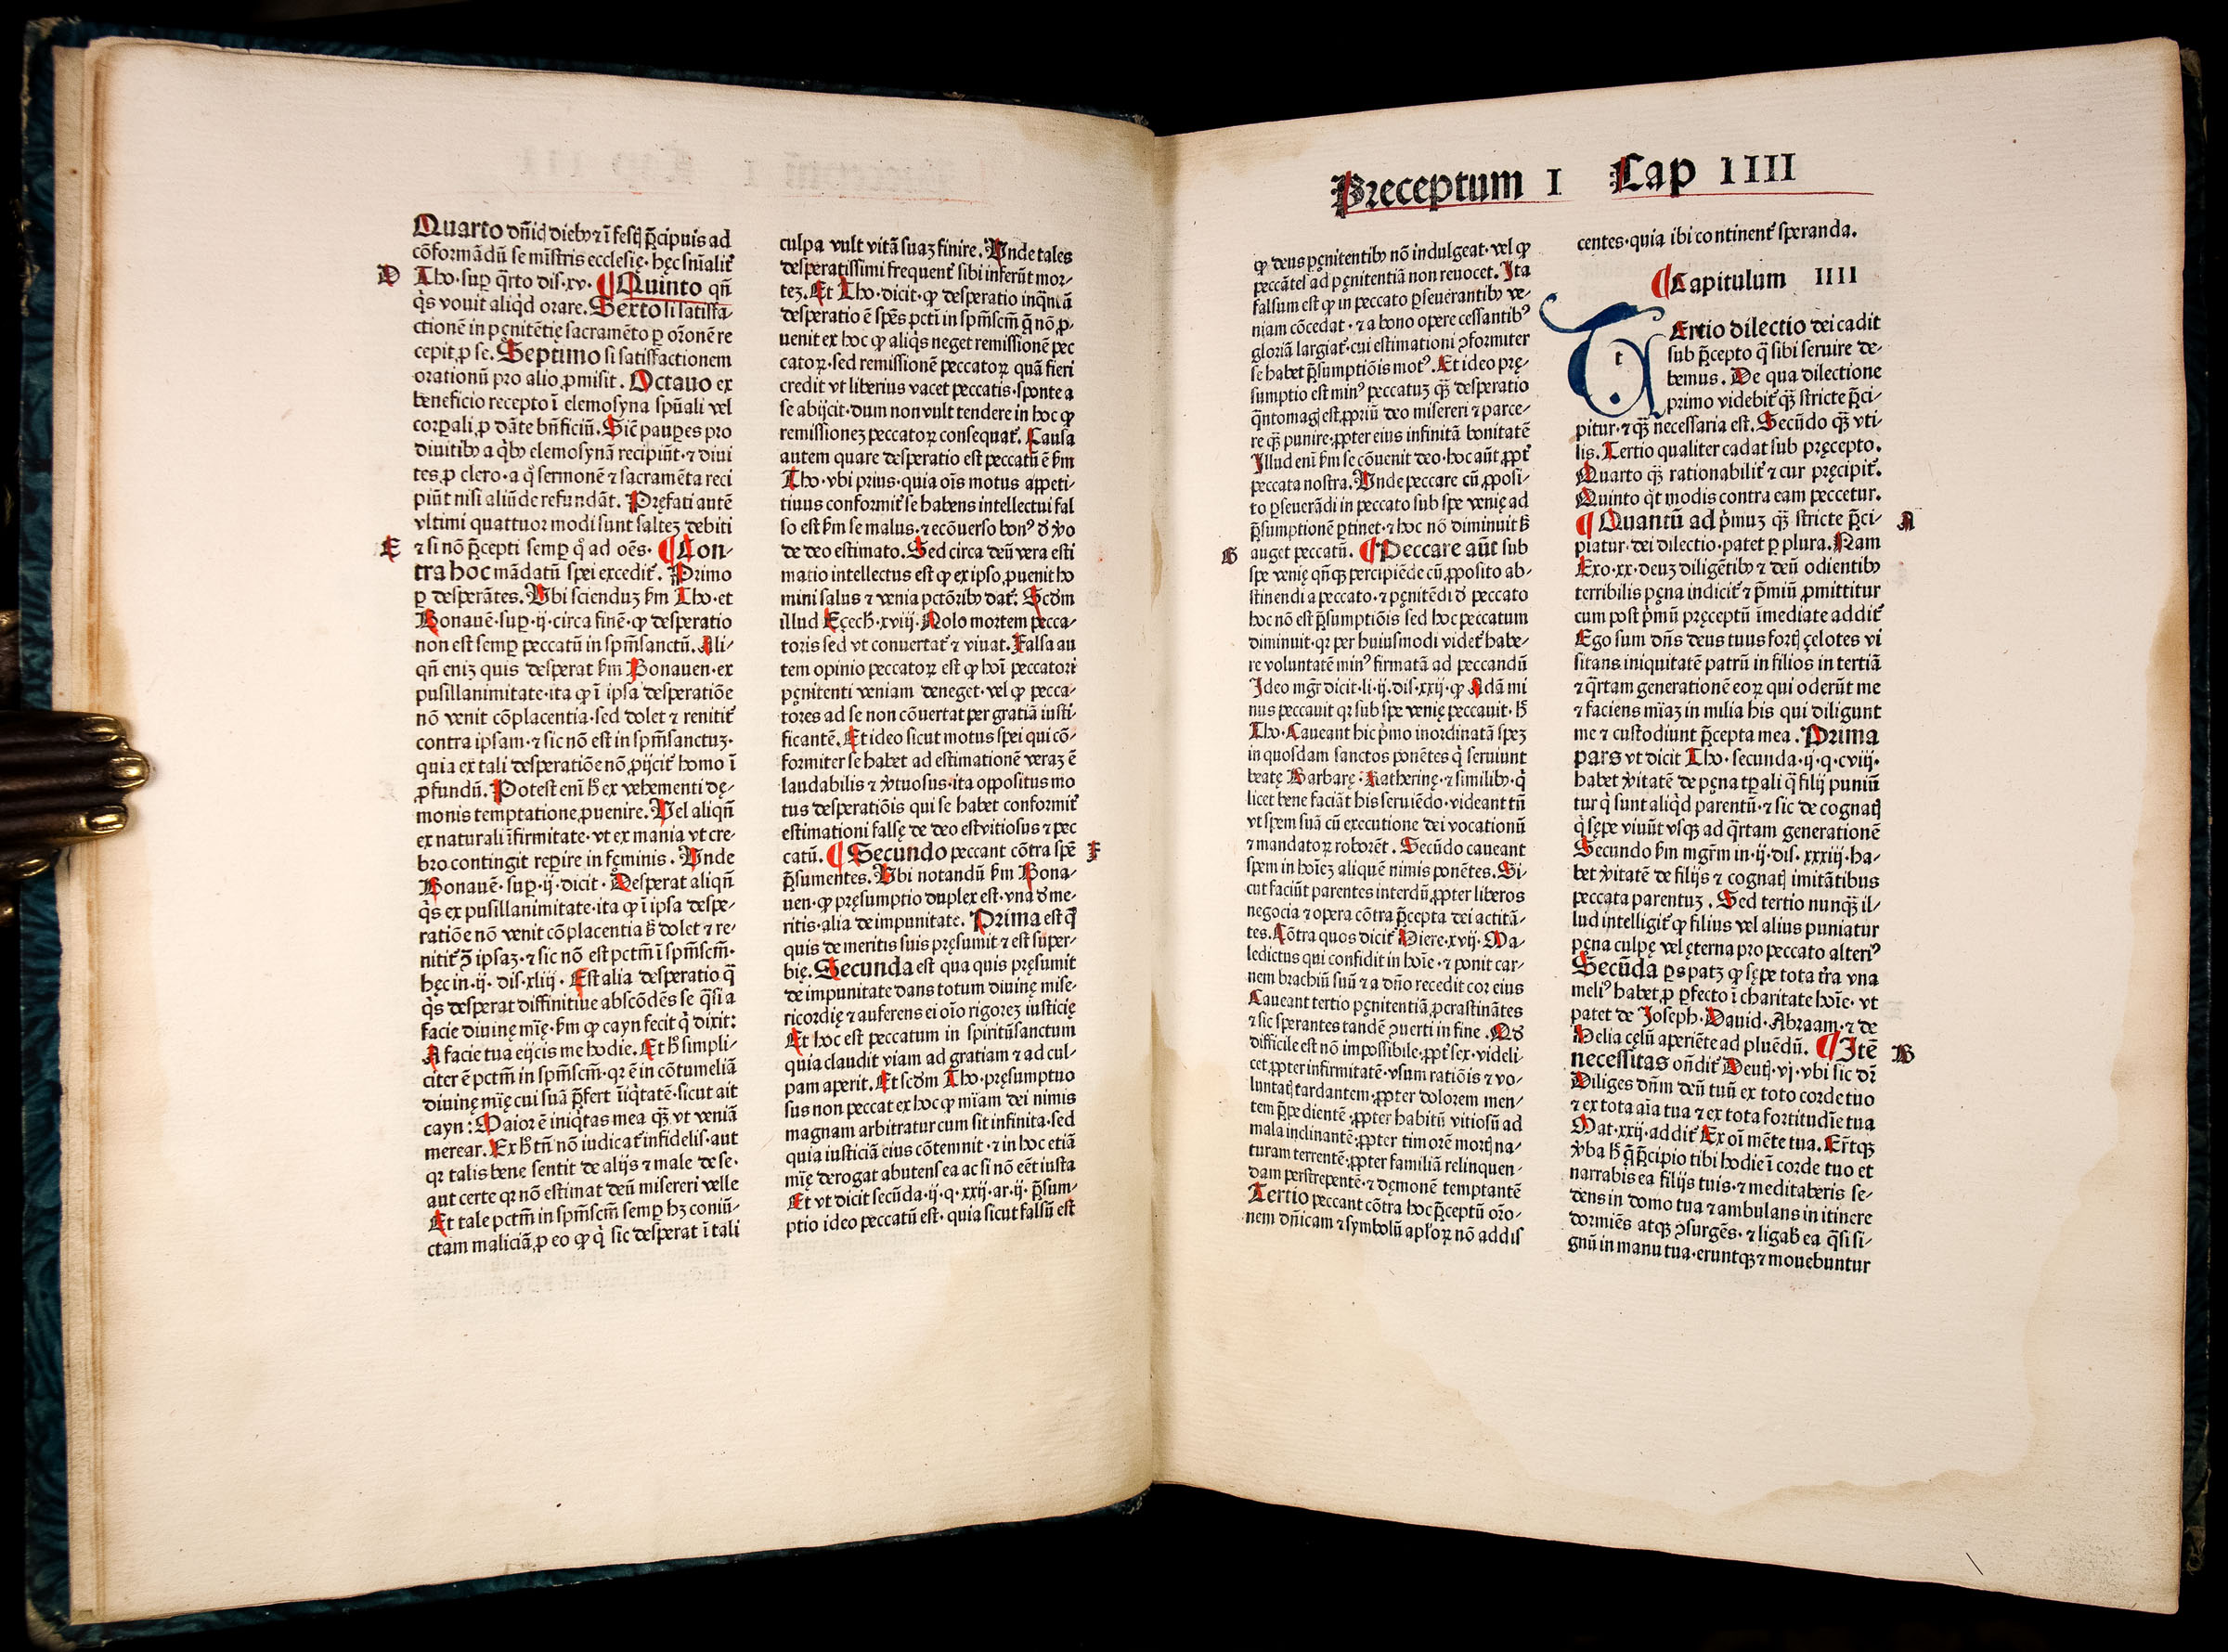 Quarto dn̄icꝭ diebꝰ ⁊ ī fesꝭ p̄cipuis ad
cōformādū se mīstris ecclesię· hęc sn̄ialit̄
D
Tho·suꝑ q̄rto dis·xv· ¶ Quinto qn̄
q̇s vouit aliqd orare. Sexto si satisfa⸗
ctionē in pęnitētię sacramēto ꝑ orōnē re
cepit ꝓ se. Septimo si satisfactionem
orationū pro alio ꝓmisit. Octauo ex
beneficio recepto ī elemosyna spūali vel
corꝑali ꝓ dāte bn̄ficiū. Sic̄ pauꝑes pro
diuitibꝰ a qbꝰ elemosynā recipiūt·⁊ diui
tes ꝓ clero·a q̊ sermonē ⁊ sacramēta reci
piūt nisi aliūde refundāt. Pręfati autē
vltimi quattuor modi sunt saltez debiti
E
⁊ si nō p̄cepti semꝑ q̊ ad oēs· ¶ Con⸗
tra hoc mādatū spei excedit̄. Primo
ꝑ desperātes. Vbi scienduz ẜm Tho·et
Bonauē·suꝑ·ij·circa finē·ꝙ desperatio
non est semꝑ peccatū in spm̄sanctū. Ali⸗
qn̄ eniz quis desperat ẜm Bonauen·ex
pusillanimitate·ita ꝙ ī ipsa desperatiōe
nō venit cōplacentia·sed dolet ⁊ renitit̄
contra ipsam·⁊ sic nō est in spm̄sanctuz·
quia ex tali desperatiōe nō ꝓijcit̄ homo ī
ꝓfundū. Potest enī hͦ ex vehementi dę⸗
monis temptatione ꝓuenire. Vel aliqn̄
ex naturali īfirmitate·vt ex mania vt cre⸗
bro contingit reꝑire in fęminis. Vnde
Bonauē·suꝑ·ij·dicit· Desperat aliqn̄
q̇s ex pusillanimitate·ita ꝙ ī ipsa despe⸗
ratiōe nō venit cōplacentia sꝫ dolet ⁊ re⸗
nitit̄ ꝯ̄ ipsaz·⁊ sic nō est pctm̄ ī spm̄scm̄·
hęc in·ij·dis·xliij· Est alia desperatio q̄
q̇s desperat diffinitiue abscōdēs se q̄si a
facie diuinę mię·ẜm ꝙ cayn fecit q̇ dixit:
A facie tua eijcis me hodie. Et hͦ simpli⸗
citer ē pctm̄ in spm̄scm̄·qꝛ ē in cōtumeliā
diuinę mię cui suā p̄fert īiqtatē·sicut ait
cayn: Maior ē iniqtas mea qꝫ vt veniā
merear. Ex hͦ tn̄ nō iudicat̄ infidelis·aut
qꝛ talis bene sentit de alijs ⁊ male de se·
aut certe qꝛ nō estimat deū misereri velle
Et tale pctm̄ in spm̄scm̄ semꝑ hꝫ coniū⸗
ctam maliciā ꝓ eo ꝙ q̇ sic desperat ī tali
culpa vult vitā suaz finire. Vnde tales
desperatissimi frequent̄ sibi inferūt mor⸗
tez. Et Tho·dicit·ꝙ desperatio inqntū
desperatio ē spēs pcti in spm̄scm̄ q̄ nō ꝓ⸗
uenit ex hoc ꝙ aliqs neget remissionē pec
catoꝝ·sed remissionē peccatoꝝ quā fieri
credit vt liberius vacet peccatis·sponte a
se abijcit·dum non vult tendere in hoc ꝙ
remissionez peccatoꝝ consequat̄. Causa
autem quare desperatio est peccatū ē ẜm
Tho·vbi prius·quia oīs motus appeti⸗
tiuus conformit̄ se habens intellectui fal
so est ẜm se malus·⁊ ecōuerso bonꝰ ď v̊o
de deo estimato. Sed circa deū vera esti
matio intellectus est ꝙ ex ipso ꝓuenit ho
mini salus ⁊ venia pctōribꝰ dat̄: Scd̄m
illud Ezech·xviij· Nolo mortem pecca⸗
toris sed vt conuertat̄ ⁊ viuat. Falsa au
tem opinio peccatoꝝ est ꝙ hoī peccatori
pęnitenti veniam deneget·vel ꝙ pecca⸗
tores ad se non cōuertat per gratiā iusti⸗
ficantē. Et ideo sicut motus spei qui cō⸗
formiter se habet ad estimationē veraz ē
laudabilis ⁊ v̊tuosus·ita oppositus mo
tus desperatiōis qui se habet conformit̄
estimationi falsę de deo est vitiosus ⁊ pec
catū. ¶ Secundo peccant cōtra spē
F
p̄sumentes. Vbi notandū ẜm Bona⸗
uen·ꝙ pręsumptio duplex est·vna ď me⸗
ritis·alia de impunitate. Prima est q̄
quis de meritis suis pręsumit ⁊ est super⸗
bię. Secunda est qua quis pręsumit
de impunitate dans totum diuinę mise⸗
ricordię ⁊ auferens ei oīo rigorez iusticię
Et hoc est peccatum in spiritūsanctum
quia claudit viam ad gratiam ⁊ ad cul⸗
pam aperit. Et scd̄m Tho·pręsumptuo
sus non peccat ex hoc ꝙ mīam dei nimis
magnam arbitratur cum sit infinita·sed
quia iusticiā eius cōtemnit·⁊ in hoc etiā
mię derogat abutens ea ac si nō eēt iusta
Et vt dicit secūda·ij·q·xxij·ar·ij·p̄sum⸗
ptio ideo peccatū est·quia sicut falsū est
Preceptum I Cap IIII
ꝙ deus pęnitentibꝰ nō indulgeat·vel ꝙ
peccātes ad pęnitentiā non reuocet. Ita
falsum est ꝙ in peccato ꝑseuerantibꝰ ve⸗
niam cōcedat·⁊ a bono opere cessantibꝰ
gloriā largiat̄·cui estimationi ꝯformiter
se habet p̄sumptiōis motꝰ. Et ideo prę⸗
sumptio est minꝰ peccatuz qꝫ desperatio
qntomagꝭ est ꝓpriū deo misereri ⁊ parce⸗
re qꝫ punire·ꝓpter eius infinitā bonitatē
Illud enī ẜm se cōuenit deo·hoc aūt ꝓpt̄
peccata nostra. Vnde peccare cū ꝓposi⸗
to ꝑseuerādi in peccato sub spe venię ad
p̄sumptionē ꝑtinet·⁊ hoc nō diminuit sꝫ
G
auget peccatū. ¶ Peccare aūt sub
spe venię qn̄qꝫ percipiēde cū ꝓposito ab⸗
stinendi a peccato·⁊ pęnitēdi ď peccato
hoc nō est p̄sumptiōis sed hoc peccatum
diminuit·qꝛ per huiusmodi videt̄ habe⸗
re voluntatē minꝰ firmatā ad peccandū
Ideo mgr̄ dicit·li·ij·dis·xxij·ꝙ Adā mi
nus peccauit qꝛ sub spe venię peccauit·hͦ
Tho·Caueant hic pͥmo inordinatā spez
in quosdam sanctos ponētes q̇ seruiunt
beatę Barbarę·Katherinę·⁊ similibꝰ·q̇
licet bene faciāt his seruiēdo·videant tn̄
vt spem suā cū executione dei vocationū
⁊ mandatoꝝ roborēt. Secūdo caueant
spem in hoīez aliquē nimis ponētes. Si⸗
cut faciūt parentes interdū ꝓpter liberos
negocia ⁊ opera cōtra p̄cepta dei actitā⸗
tes. Cōtra quos dicit̄ Hiere·xvij·Ma⸗
ledictus qui confidit in hoīe·⁊ ponit car⸗
nem brachiū suū ⁊ a dn̄o recedit cor eius
Caueant tertio pęnitentiā ꝓcrastinātes
⁊ sic sperantes tandē ꝯuerti in fine. Qď
difficile est nō impossibile·ꝓpt̄ sex·videli⸗
cet·ꝓpter infirmitatē·vsum ratiōis ⁊ vo⸗
luntatꝭ tardantem·ꝓpter dolorem men⸗
tem p̄pedientē·ꝓpter habitū vitiosū ad
mala inclinantē·ꝓpter timorē mortꝭ na⸗
turam terrentē·ꝓpter familiā relinquen⸗
dam perstrepentē·⁊ dęmonē temptantē
Tertio peccant cōtra hoc p̄ceptū orō⸗
nem dn̄icam ⁊ symbolū apl̓oꝝ nō addis
centes·quia ibi continent̄ speranda.
¶ Capitulum IIII
t
Ertio dilectio dei cadit
sub p̄cepto q̄ sibi seruire de⸗
bemus. De qua dilectione
primo videbit̄ qꝫ stricte p̄ci⸗
pitur·⁊ qꝫ necessaria est. Secūdo qꝫ vti⸗
lis. Tertio qualiter cadat sub pręcepto.
Quarto qꝫ rationabilit̄ ⁊ cur pręcipit̄.
Quinto qt̄ modis contra eam peccetur.
¶ Quantū ad pͥmuz qꝫ stricte p̄ci⸗
A
piatur·dei dilectio·patet ꝑ plura. Nam
Exo·xx·deuz diligētibꝰ ⁊ deū odientibꝰ
terribilis pęna indicit̄ ⁊ p̄miū ꝓmittitur
cum post pͥmū pręceptū īmediate addit̄
Ego sum dn̄s deus tuus fortꝭ çelotes vi
sitans iniquitatē patrū in filios in tertiā
⁊ qrtam generationē eoꝝ qui oderūt me
⁊ faciens mīaz in milia his qui diligunt
me ⁊ custodiunt p̄cepta mea. Prima
pars vt dicit Tho·secunda·ij·q·cviij·
habet v̊itatē de pęna tꝑali q̄ filij puniū
tur q̇ sunt aliqd parentū·⁊ sic de cognatꝭ
q̇ sępe viuūt vsqꝫ ad qrtam generationē
Secundo ẜm mgr̄m in·ij·dis·xxxiij·ha⸗
bet v̊itatē de filijs ⁊ cognatꝭ imitātibus
peccata parentuz. Sed tertio nunqꝫ il⸗
lud intelligit̄ ꝙ filius vel alius puniatur
pęna culpę vel ęterna pro peccato alteriꝰ
Secūda ꝑs patꝫ ꝙ sępe tota tr̄a vna
meliꝰ habet ꝓ ꝑfecto ī charitate hoīe·vt
patet de Joseph·Dauid·Abraam·⁊ de
Helia cęlū aperiēte ad pluēdū. ¶ Itē
B
necessitas on̄dit̄ Deutꝭ·vj·vbi sic dr̄
Diliges dn̄m deū tuū ex toto corde tuo
⁊ ex tota aīa tua ⁊ ex tota fortitudīe tua
Mat·xxij·addit̄ Ex oī mēte tua. Er̄tqꝫ
v̊ba hͦ q̄ p̄cipio tibi hodie ī corde tuo et
narrabis ea filijs tuis·⁊ meditaberis se⸗
dens in domo tua ⁊ ambulans in itinere
dormiēs atqꝫ ꝯsurgēs·⁊ ligab̄ ea q̄si si⸗
gnū in manu tua·eruntqꝫ ⁊ mouebuntur